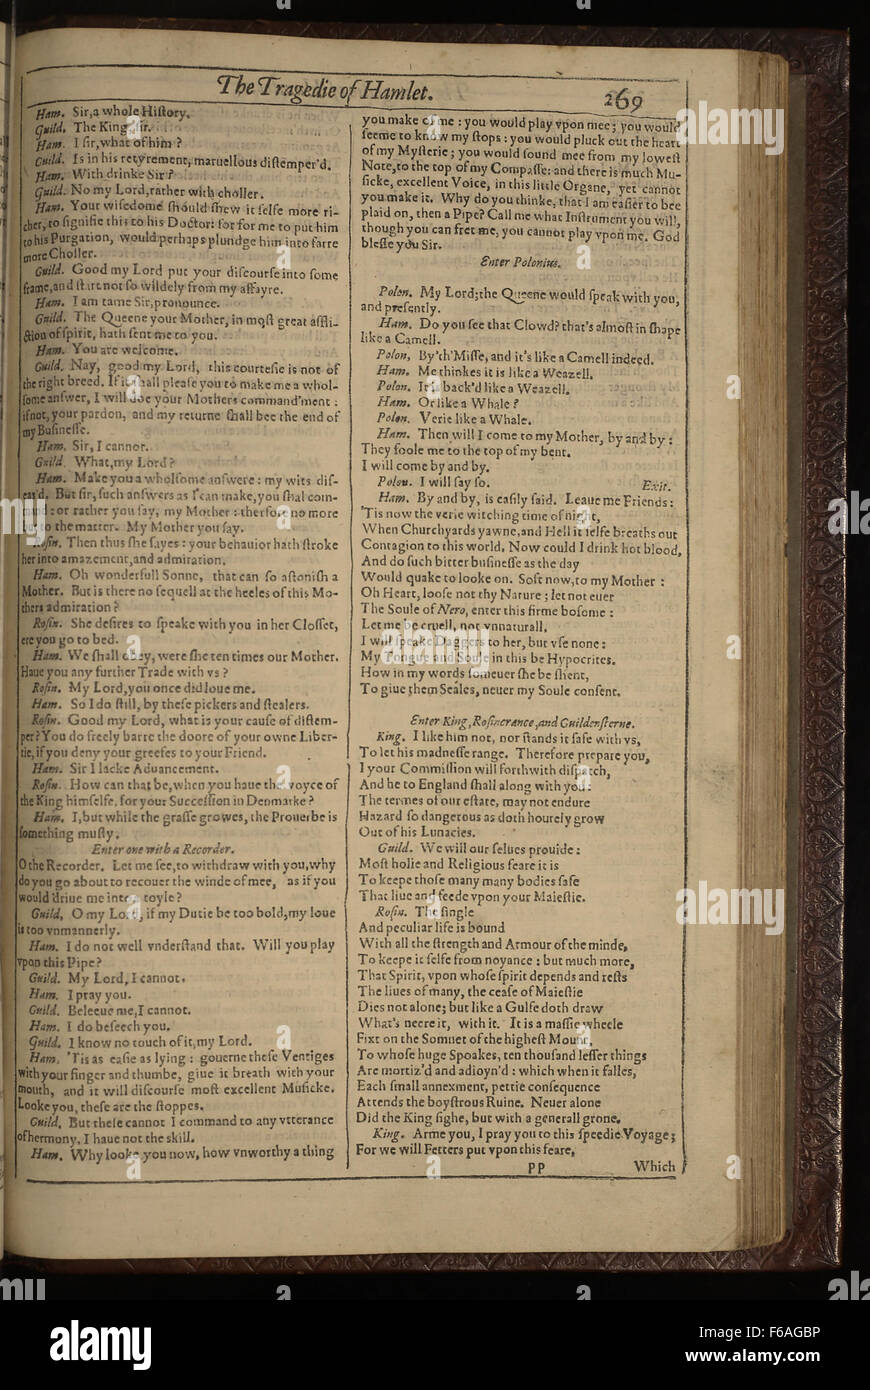 The Tragedie of Hamlet.
269
Ham. Sir, a whole Hiſtory.
Guild. The King, ſir.
Ham. I ſir, what of him?
Guild. Is in his retyrement, maruellous diſtemper'd.
Ham. With drinke Sir?
Guild. No my Lord, rather with choller.
Ham. Your wiſedome ſhould ſhew it ſelfe more ri-
cher, to ſignifie this to his Doctor: for for me to put him
to his Purgation, would perhaps plundge him into farre
more Choller.
Guild. Good my Lord put your diſcourſe into ſome
frame, and ſtart not ſo wildely from my affayre.
Ham. I am tame Sir, pronounce.
Guild. The Queene your Mother, in moſt great affli-
ction of ſpirit, hath ſent me to you.
Ham. You are welcome.
Guild. Nay, good my Lord, this courteſie is not of
the right breed. If it ſhall pleaſe you to make me a whol-
ſome anſwer, I will doe your Mothers command'ment:
if not, your pardon, and my returne ſhall bee the end of
my Buſineſſe.
Ham. Sir, I cannot.
Guild. What, my Lord?
Ham. Make you a wholſome anſwere: my wits diſ-
eas'd. But ſir, ſuch anſwers as I can make, you ſhal com-
mand: or rather you ſay, my Mother: therfore no more
but to the matter. My Mother you ſay.
Roſin. Then thus ſhe ſayes: your behauior hath ſtroke
her into amazement, and admiration.
Ham. Oh wonderfull Sonne, that can ſo aſtoniſh a
Mother. But is there no ſequell at the heeles of this Mo-
thers admiration?
Roſin. She deſires to ſpeake with you in her Cloſſet,
ere you go to bed.
Ham. We ſhall obey, were ſhe ten times our Mother.
Haue you any further Trade with vs?
Roſin. My Lord, you once did loue me.
Ham. So I do ſtill, by theſe pickers and ſtealers.
Roſin. Good my Lord, what is your cauſe of diſtem-
per? You do freely barre the doore of your owne Liber-
tie, if you deny your greefes to your Friend.
Ham. Sir I lacke Aduancement.
Roſin. How can that be, when you haue the voyce of
the King himſelfe, for your Succeſſion in Denmarke?
Ham. I, but while the graſſe growes, the Prouerbe is
ſomething muſty.
Enter one with a Recorder.
O the Recorder. Let me ſee, to withdraw with you, why
do you go about to recouer the winde of mee, as if you
would driue me into a toyle?
Guild. O my Lord, if my Dutie be too bold, my loue
is too vnmannerly.
Ham. I do not well vnderſtand that. Will you play
vpon this Pipe?
Guild. My Lord, I cannot.
Ham. I pray you.
Guild. Beleeue me, I cannot.
Ham. I do beſeech you.
Guild. I know no touch of it, my Lord.
Ham. 'Tis as eaſie as lying: gouerne theſe Ventiges
with your finger and thumbe, giue it breath with your
mouth, and it will diſcourſe moſt excellent Muſicke.
Looke you, theſe are the ſtoppes.
Guild. But theſe cannot I command to any vtterance
of hermony, I haue not the skill.
Ham. Why looke you now, how vnworthy a thing
you make of me: you would play vpon mee; you would
ſeeme to know my ſtops: you would pluck out the heart
of my Myſterie; you would ſound mee from my loweſt
Note, to the top of my Compaſſe: and there is much Mu-
ſicke, excellent Voice, in this little Organe, yet cannot
you make it. Why do you thinke, that I am eaſier to bee
plaid on, then a Pipe? Call me what Inſtrument you will,
though you can fret me, you cannot play vpon me. God
bleſſe you Sir.
Enter Polonius.
Polon. My Lord; the Queene would ſpeak with you,
and preſently.
Ham. Do you ſee that Clowd? that's almoſt in ſhape
like a Camell.
Polon. By'th'Miſſe, and it's like a Camell indeed.
Ham. Me thinkes it is like a Weazell.
Polon. It is back'd like a Weazell.
Ham. Or like a Whale?
Polon. Verie like a Whale.
Ham. Then will I come to my Mother, by and by:
They foole me to the top of my bent.
I will come by and by.
Polon. I will ſay ſo. Exit.
Ham. By and by, is eaſily ſaid. Leaue me Friends:
'Tis now the verie witching time of night,
When Churchyards yawne, and Hell it ſelfe breaths out
Contagion to this world. Now could I drink hot blood,
And do ſuch bitter buſineſſe as the day
Would quake to looke on. Soft now, to my Mother:
Oh Heart, looſe not thy Nature; let not euer
The Soule of Nero, enter this firme boſome:
Let me be cruell, not vnnaturall.
I will ſpeake Daggers to her, but vſe none:
My Tongue and Soule in this be Hypocrites.
How in my words ſomeuer ſhe be ſhent,
To giue them Seales, neuer my Soule conſent.
Enter King, Roſincrance, and Guildenſterne.
King. I like him not, nor ſtands it ſafe with vs,
To let his madneſſe range. Therefore prepare you,
I your Commiſſion will forthwith diſpatch,
And he to England ſhall along with you:
The termes of our eſtate, may not endure
Hazard ſo dangerous as doth hourely grow
Out of his Lunacies.
Guild. We will our ſelues prouide:
Moſt holie and Religious feare it is
To keepe thoſe many many bodies ſafe
That liue and feede vpon your Maieſtie.
Roſin. The ſingle
And peculiar life is bound
With all the ſtrength and Armour of the minde,
To keepe it ſelfe from noyance: but much more,
That Spirit, vpon whoſe ſpirit depends and reſts
The liues of many, the ceaſe of Maieſtie
Dies not alone; but like a Gulfe doth draw
What's neere it, with it. It is a maſſie wheele
Fixt on the Somnet of the higheſt Mount,
To whoſe huge Spoakes, ten thouſand leſſer things
Are mortiz'd and adioyn'd: which when it falles,
Each ſmall annexment, pettie conſequence
Attends the boyſtrous Ruine. Neuer alone
Did the King ſighe, but with a generall grone.
King. Arme you, I pray you to this ſpeedie Voyage;
For we will Fetters put vpon this feare,
pp Which
alamy
a alamy stock photo
F6AGBP
www.alamy.com